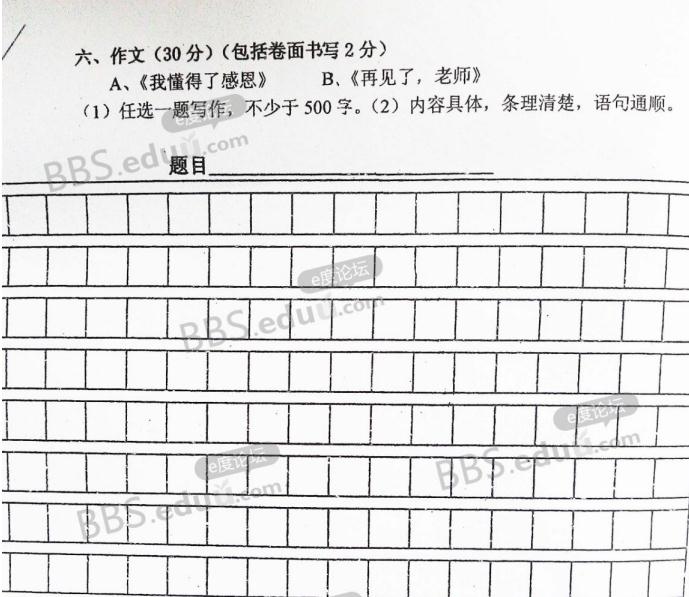 六、作文（30分）（包括卷面书写2分）
A、《我懂得了感恩》 B、《再见了，老师》
（1）任选一题写作，不少于500字。（2）内容具体，条理清楚，语句通顺。
e度论坛
BBS.eduu.com
题目
e度论坛
BBS.eduu.com
e度论坛
BBS.eduu.com
e度论坛
BBS.eduu.com